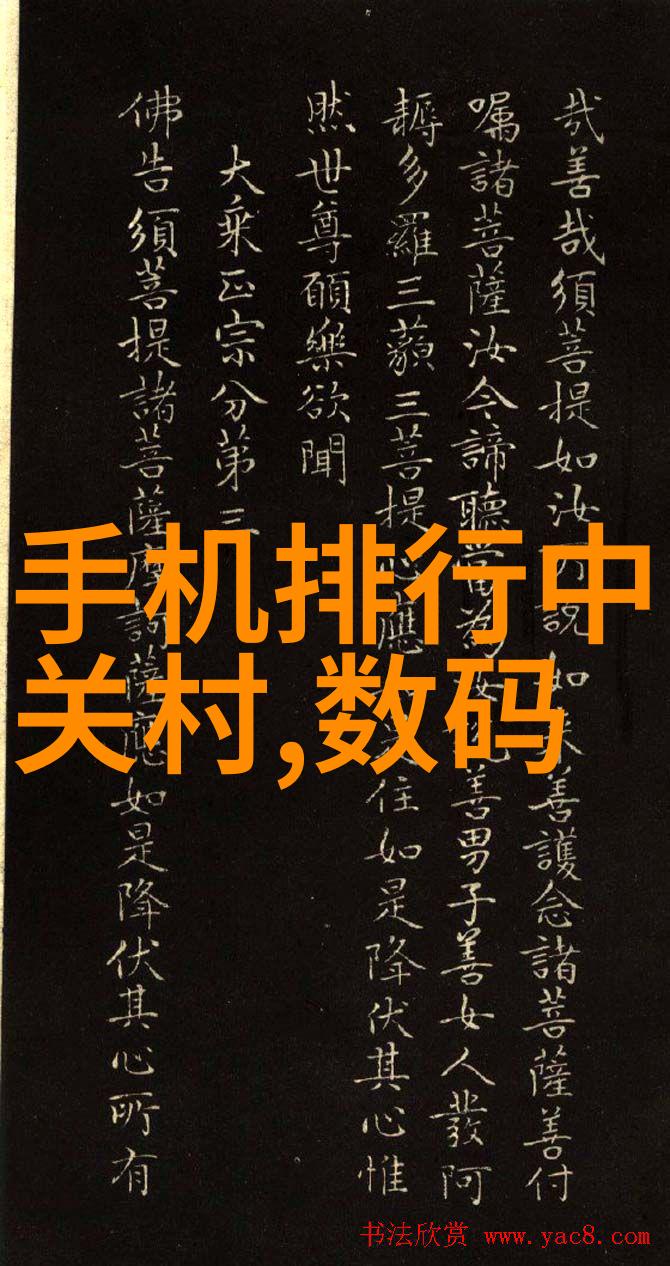 哉善哉須菩提如汝所說如來善護念諸菩薩善付
嘱諸菩薩汝今諦聽當為汝說善男子善女人發阿
耨多羅三藐三菩提心應住如是降伏其心惟
然世尊願樂欲聞
大乘正宗分第三
佛告須菩提諸菩薩摩訶薩應如是降伏其心所有
手机排行中
关村,数码
书法欣赏 www.yac8.com